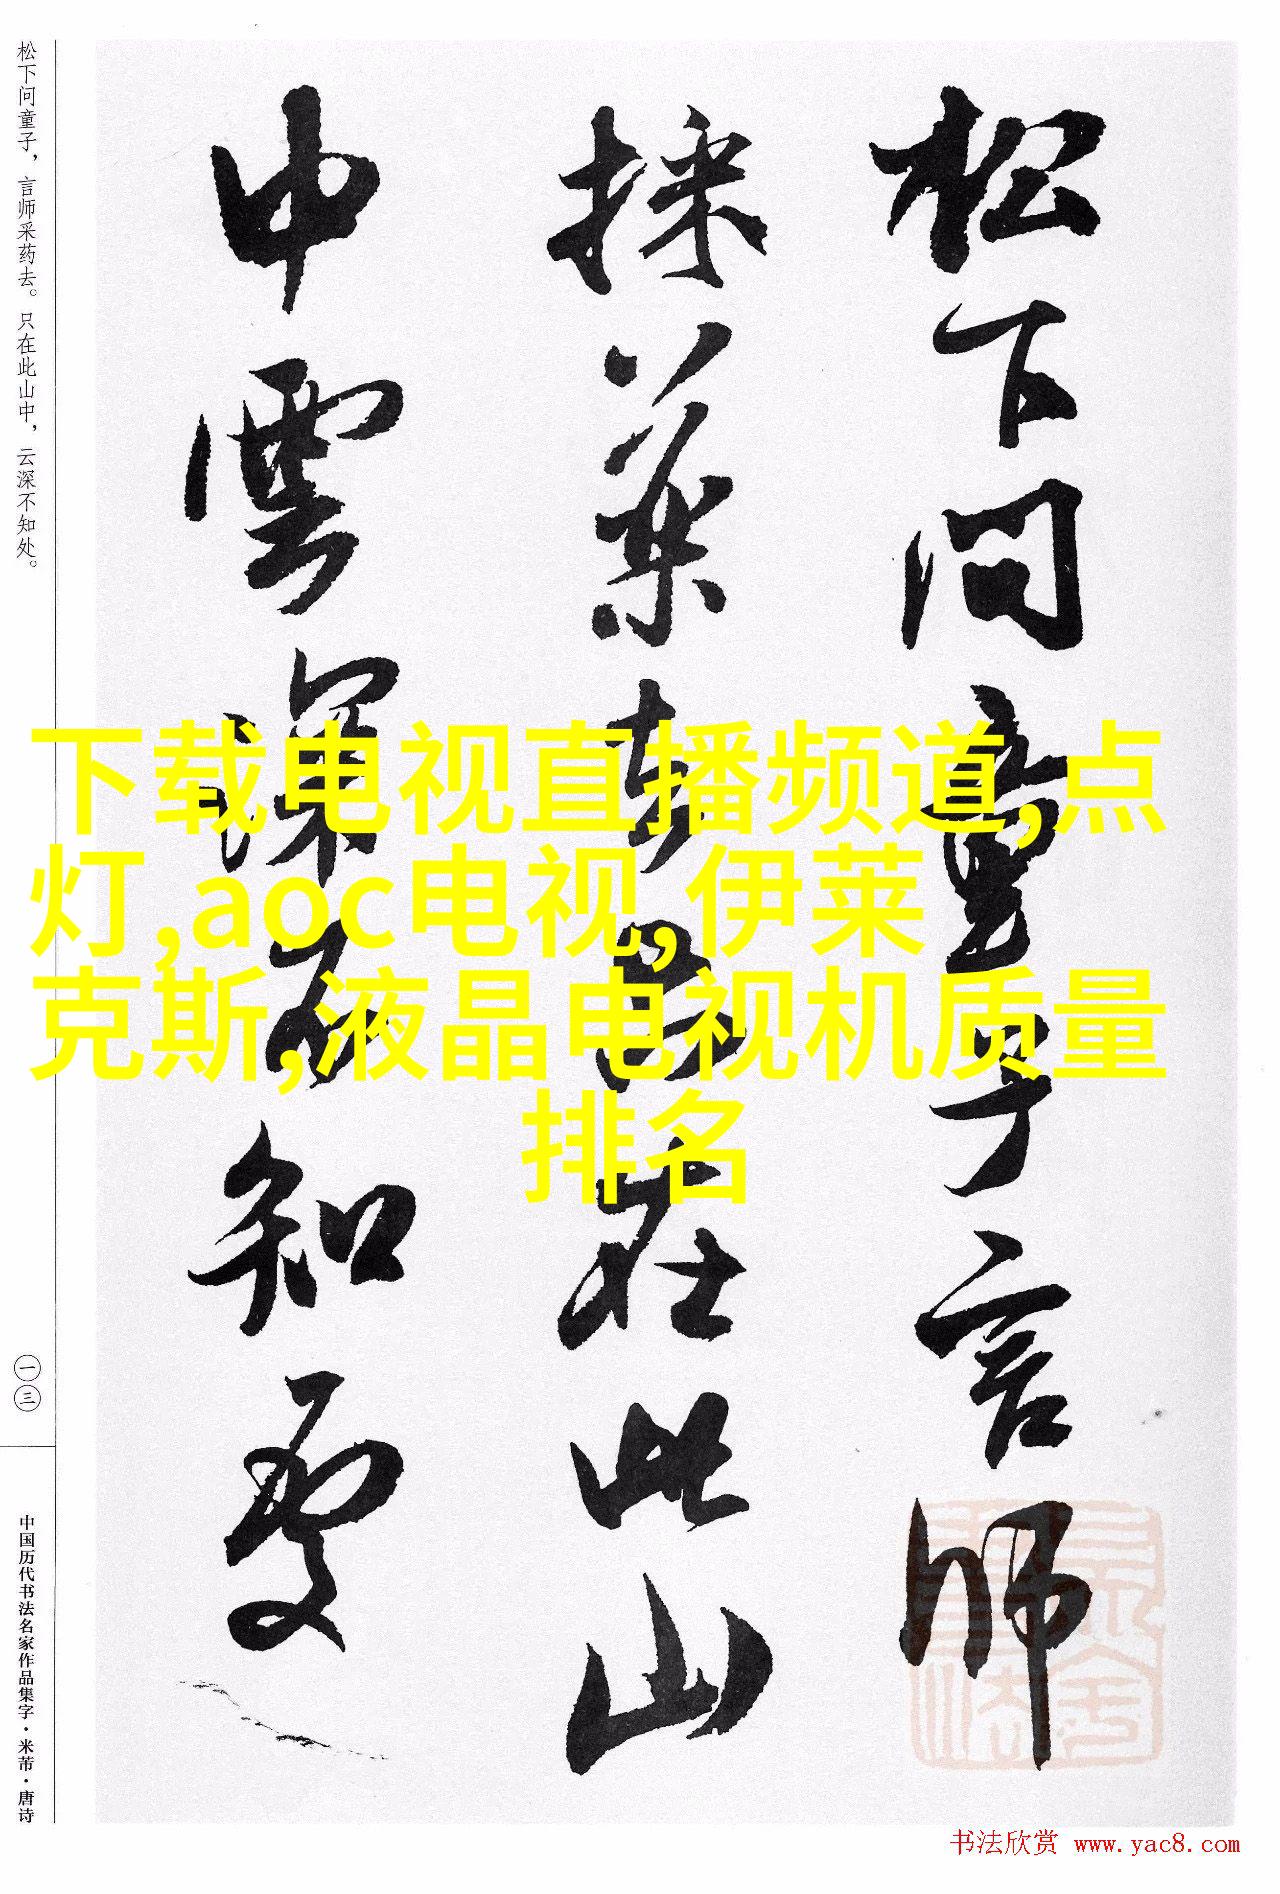 松下問童子言師
採藥去只在此山
中雲深不知處
松下问童子，言师采药去。只在此山中，云深不知处。
一三
中国历代书法名家作品集字·米芾·唐诗
下载电视直播频道,点
灯,aoc电视,伊莱
克斯,液晶电视机质量
排名
书法欣赏 www.yac8.com